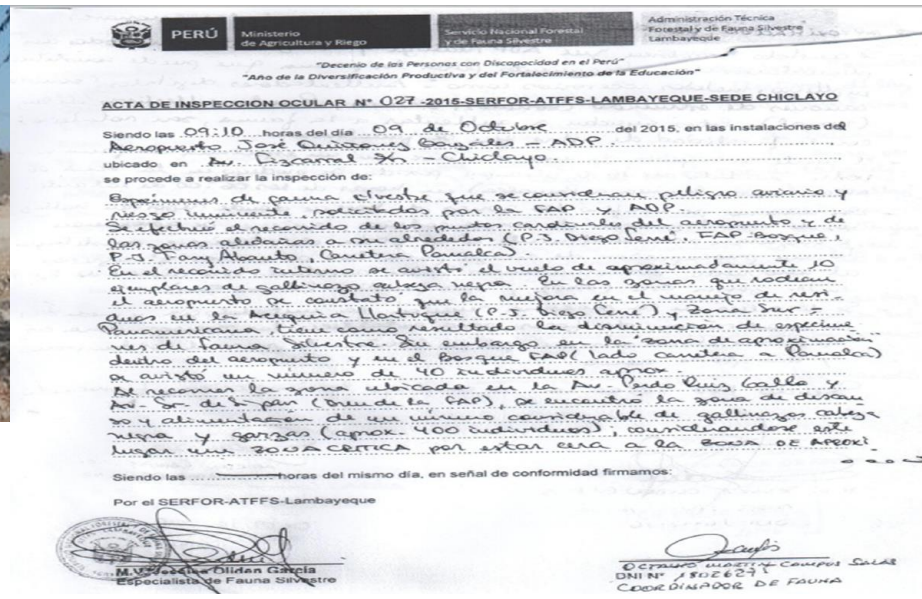 PERÚ
Ministerio
de Agricultura y Riego
Servicio Nacional Forestal
y de Fauna Silvestre
Administración Técnica
Forestal y de Fauna Silvestre
Lambayeque
"Decenio de las Personas con Discapacidad en el Perú"
"Año de la Diversificación Productiva y del Fortalecimiento de la Educación"
ACTA DE INSPECCIÓN OCULAR N° 027-2015-SERFOR-ATFFS-LAMBAYEQUE-SEDE CHICLAYO
Siendo las 09:10 horas del día 09 de Octubre del 2015, en las instalaciones del
Aeropuerto José Quiñonez Gonzáles - ADP.
ubicado en Av. Fizcarral S/n - Chiclayo.
se procede a realizar la inspección de:
Especimenes de fauna silvestre que se consideran peligro aviario y
riesgo inminente, solicitados por la FAP y ADP
Se efectuó el recorrido de los puntos cardinales del aeropuerto y de
las zonas aledañas a su alrededor (P.J. Diego Ferré, FAP-Bosque,
P.J. Fany Abanto, Carretera Pomalca)
En el recorrido interno se avistó el vuelo de aproximadamente 10
ejemplares de gallinazo cabeza negra. En las zonas que rodean
el aeropuerto se constató que la mejora en el manejo de resi-
duos en la (P.J. Diego Ferré) y Zona Sur -
Panamericana, tiene como resultado la disminución de especime
nes de fauna silvestre. Sin embargo en la "zona de aproximación"
dentro del aeropuerto y en el Bosque FAP (lado carretera a Pomalca)
se avistó un número de 40 individuos aprox.
Al recorrer la zona ubicada en la Av. Pedro Ruiz Gallo y
Av. Sr. de Sipan (Dren de la FAP), se encontró la zona de descan
so y alimentación de un número considerable de gallinazos cabeza
negra y garzas (aprox. 400 individuos); considerandose este
lugar una ZONA CRITICA por estar cerca a la ZONA DE APROXI
Siendo las horas del mismo día, en señal de conformidad firmamos:
Por el SERFOR-ATFFS-Lambayeque
M.V. Jessica Olidan García
Especialista de Fauna Silvestre
OCTAVIO MARTIN CAMPOS SALAS
DNI N° 18026271
COORDINADOR DE FAUNA